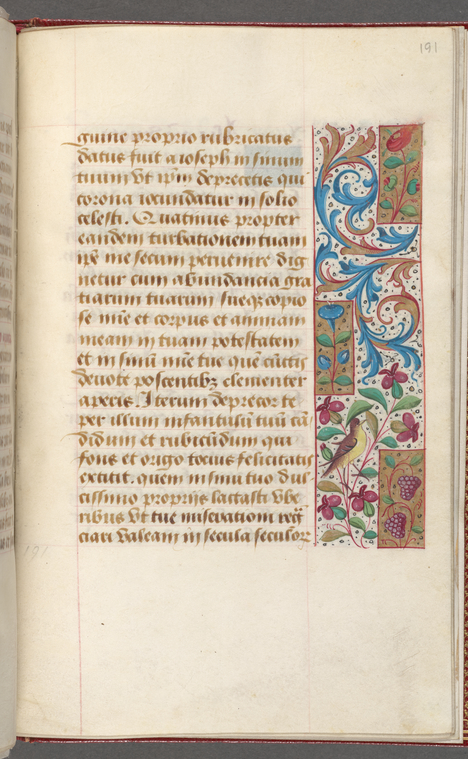 191
guine proprio rubricatus
datus fuit a ioseph in sinum
tuum vt ip̄m depreceris qui
corona iocundatur in solio
celesti. Quatinus propter
eandem turbationem tuam
ip̄e me secum peruenire dig
netur cum abundancia gra
tiarum tuarum sicq̄ copio
se mīe et corpus et animam
meam in tuam potestatem
et in sinū mīe tue quē cūctis
deuote poscentibꝫ clementer
aperis. Iterum deprecor te
per illum infantulū tuū cā
didum et rubicūdum qui
fons et origo tocius felicitatis
extitit. quem in sinu tuo dul
cissimo proprijs lactasti vbe
ribus vt tue miserationi reḡ
ciari valeam in secula seculoꝝ
191